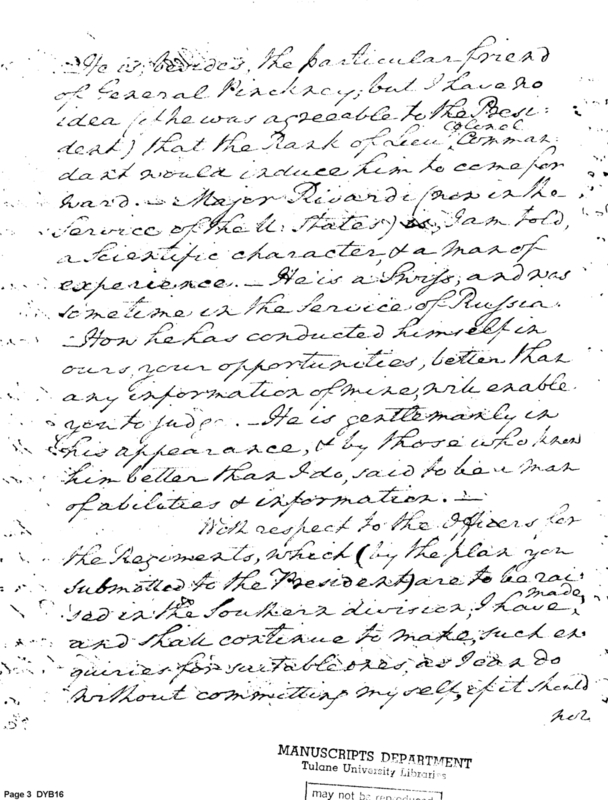 He is, besides, the particular friend
of General Pinckney; but I have no
idea (if he was agreeable to the Presi-
dent) that the Rank of Lieu Colonel Comman
dant would induce him to come for
ward. — Major Rivardi (now in the
Service of the U: States) is, I am told,
a Scientific character, & a man of
experience. — He is a Swiss, and was
sometime in the Service of Russia.
— How he has conducted himself in
ours, your opportunities, better than
any information of mine, will enable
you to judge. — He is gentlemanly in
his appearance, & by those who know
him better than I do, said to be a man
of abilities & information. —
With respect to the Officers for
the Regiments, which (by the plan you
submitted to the President) are to be rai
sed in the Southern division, I have made,
and shall continue to make, such en
quiries for suitable ones, as I can do
without committing myself, if it should
not
MANUSCRIPTS DEPARTMENT
Tulane University Libraries
may not be reproduced
Page 3 DYB16